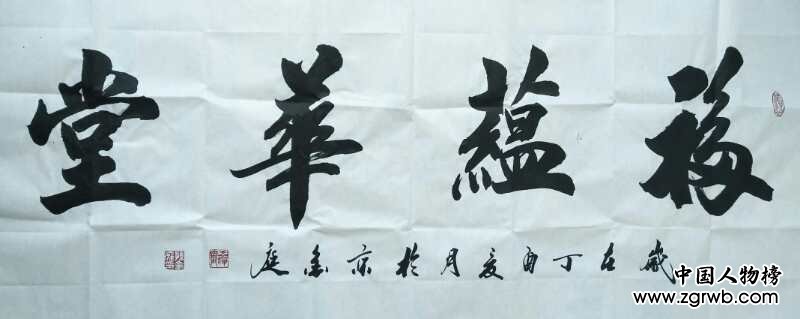 福蘊華堂
歲在丁酉夏月於京庭
中国人物榜
www.zgrwb.com